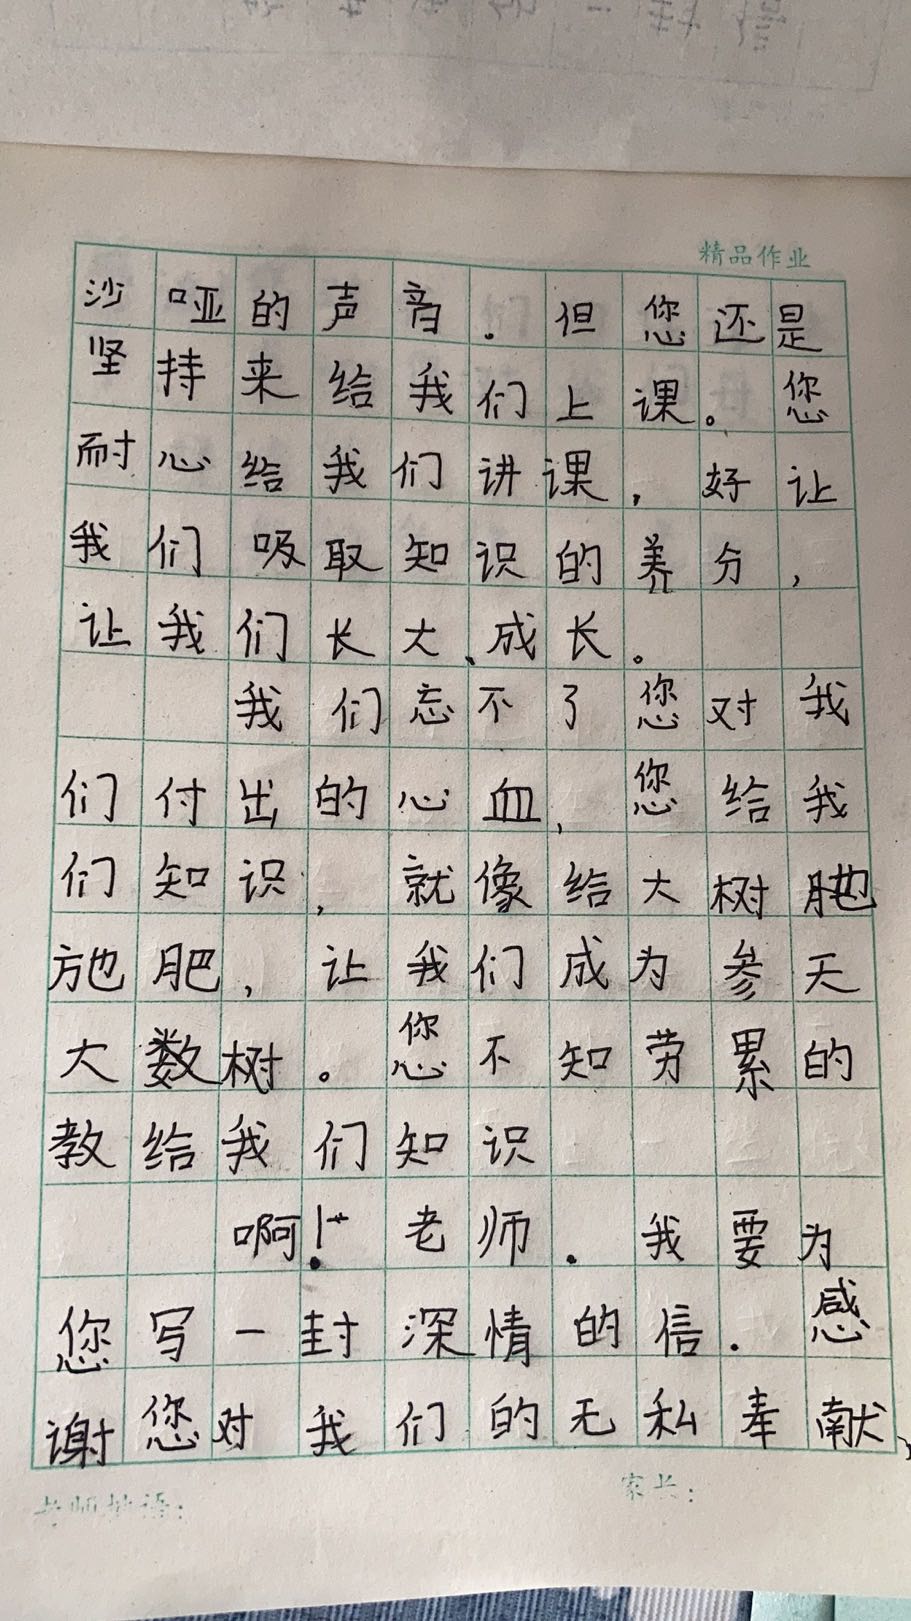 精品作业
沙哑的声音.但您还是
坚持来给我们上课。您
耐心给我们讲课，好让
我们吸取知识的养分，
让我们长大、成长。
我们忘不了您对我
们付出的心血，您给我
们知识，就像给大树
施肥，让我们成为参天
大数树。您不知劳累的
教给我们知识
啊！老师.我要为
您写一封深情的信.感
谢您对我们的无私奉献、
老师批语： 家长：